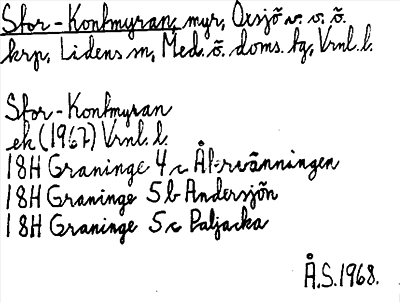 Stor-Kontmyran, myr, Oxsjö v. o. ö.
krp, Lidens sn, Med. ö. doms. tg, Vrnl. l.
Stor-Kontmyran
ek (1967) Vrnl. l.
18H Graninge 4c Återvänningen
18H Graninge 5b Andersjön
18H Graninge 5c Paljacka
Å.S. 1968.